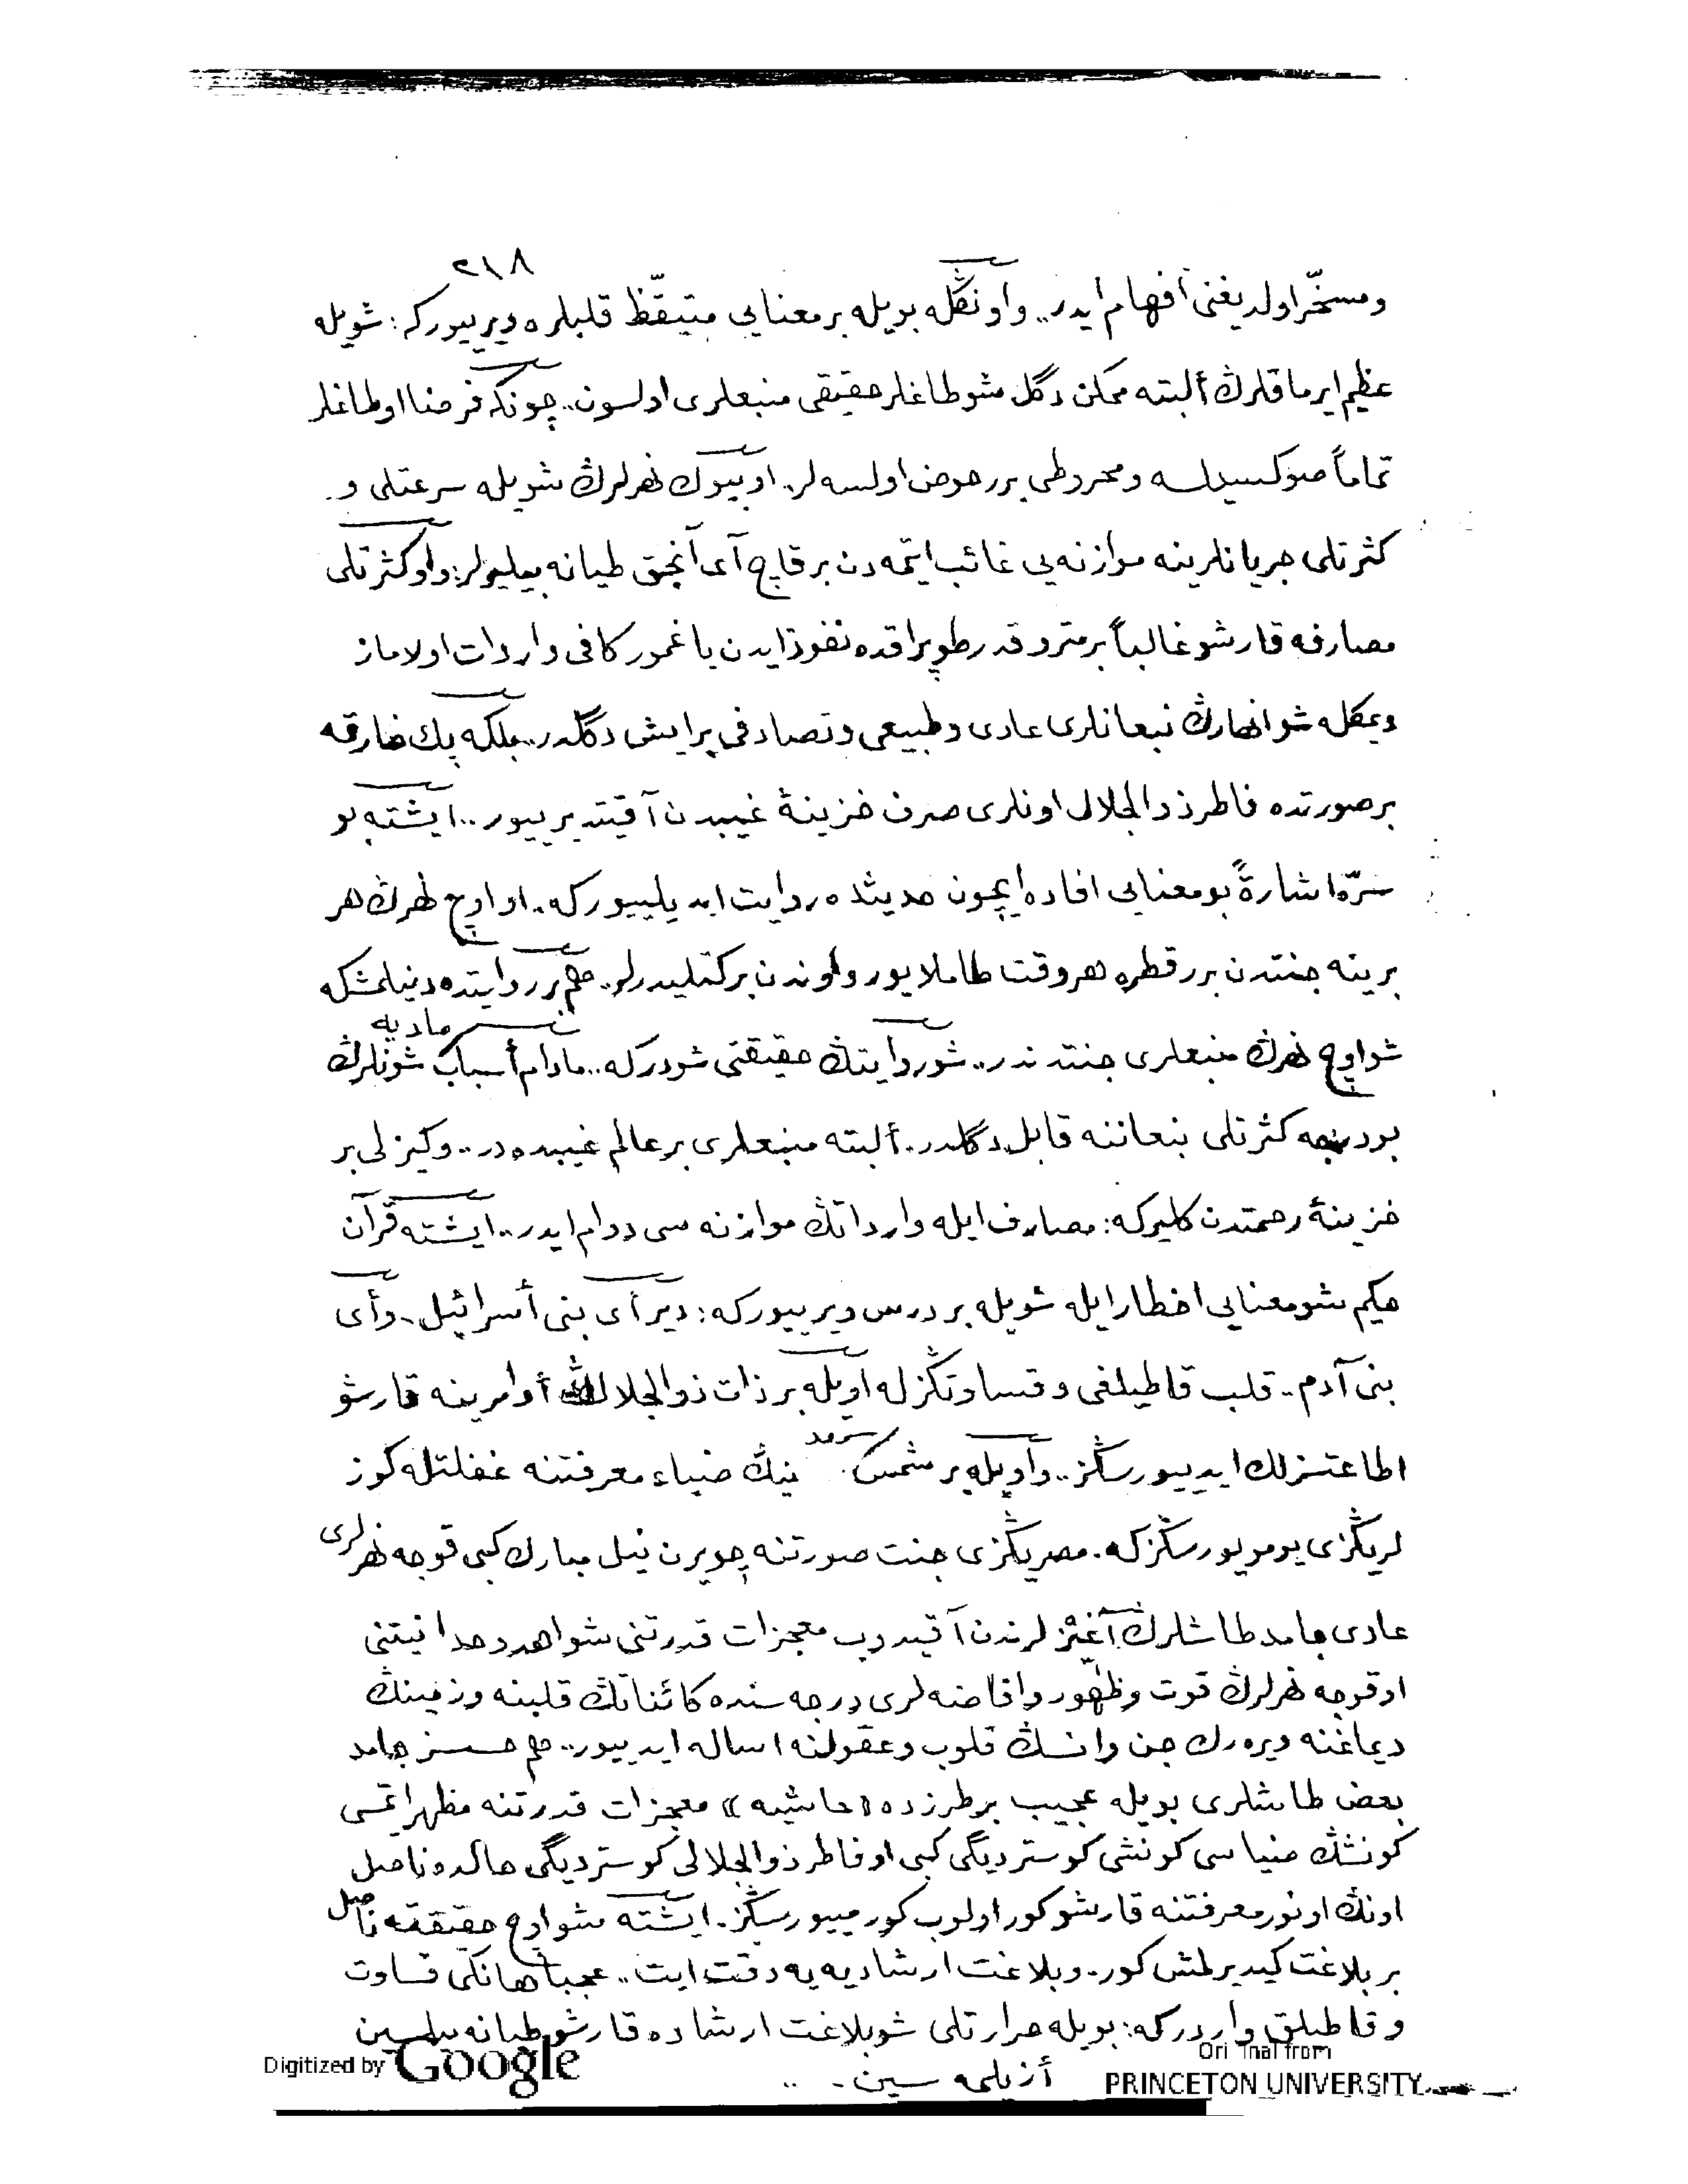 ٢١٨
ومسخّر اولديغنى أفهام أيدر.. واونڭله بويله بر معنايى متيقّظ قلبلره ويرييوركه: شويله
عظيم ايرماقلرڭ ألبته ممكن دگل شو طاغلر حقيقى منبعلرى اولسون.. چونكه فرضا او طاغلر
تماماً صو كسيلسه و مخروطى برر حوض اولسه لر.. او بيوك نهرلرڭ شويله سرعتلى و
كثرتلى جريانلرينه موازنه يى غائب ايتمه دن بر قاچ آى آنجق طيانه بيليرلر. واو كثرتلى
مصارفه قارشو غالباً بر مترو قدر طوپراقده نفوذ ايدن ياغمور كافى واردات اولاماز
ديمكله شو انهارڭ نبعانلرى عادى و طبيعى و تصادفى بر ايش دگلدر.. بلكه پك خارقه
بر صورتده فاطر ذوالجلال اونلرى صرف خزينهٔ غيبدن آقيتديرييور.. ايشته بو
سرّه اشارةً بو معنايى افاده ايچون حديثده روايت ايديلييوركه.. او اوچ نهرڭ هر
برينه جنتدن برر قطره هر وقت طاملايور و اوندن بركتليدرلر. هم بر روايتده دنيلمشكه
شو اوچ نهرڭ منبعلرى جنتدندر.. شو روايتڭ حقيقتى شودركه.. مادام أسباب ماديه شونلرڭ
بو درجه كثرتلى نبعاننه قابل دگلدر.. ألبته منبعلرى بر عالم غيبده در.. و گيزلى بر
خزينهٔ رحمتدن كليركه: مصارف ايله وارداتڭ موازنه سى دوام ايدر.. ايشته قرآن
حكيم شو معنايى اخطار ايله شويله بر درس ويرييوركه: دير أى بنى أسرائيل.. وأى
بنى آدم.. قلب قاطيلغى و قساوتڭزله اويله بر ذات ذوالجلالڭ أوامرينه قارشو
اطاعتسزلك ايدييورسڭز.. و اويله بر شمس سرمدينڭ ضياء معرفتنه غفلتله كوز
لريڭزى يومويورسڭزكه. مصريڭزى جنت صورتنه چويرن نيل مبارك كبى قوجه نهرلرى
عادى جامد طاشلرڭ آغيزلرندن آقيدوب معجزات قدرتنى شواهد وحدانيتنى
او قوجه نهرلرڭ قوت و ظهور و افاضه لرى درجه سنده كائناتڭ قلبنه و زمينڭ
ديماغنه ويره رك جن و انسڭ قلوب و عقولنه اساله ايدييور.. هم حسسز جامد
بعض طاشلرى بويله عجيب بر طرزده «حاشيه» معجزات قدرتنه مظهر ايتمسى
كونشڭ ضياسى كونشى كوستردیگى كبى او فاطر ذوالجلالى كوستردیگى حالده ناصل
اونڭ او نور معرفتنه قارشو كور اولوب كورمييورسڭز. ايشته شو اوچ حقيقته ناصل
بر بلاغت كيديرلمش كور. و بلاغت ارشاديه يه دقت ايت.. عجبا هانكى قساوت
و قاطيلق واردركه: بويله حرارتلى شو بلاغت ارشاده قارشو طيانه بيلسين
أزيلمه سين..
Digitized by Google
Original from
PRINCETON UNIVERSITY